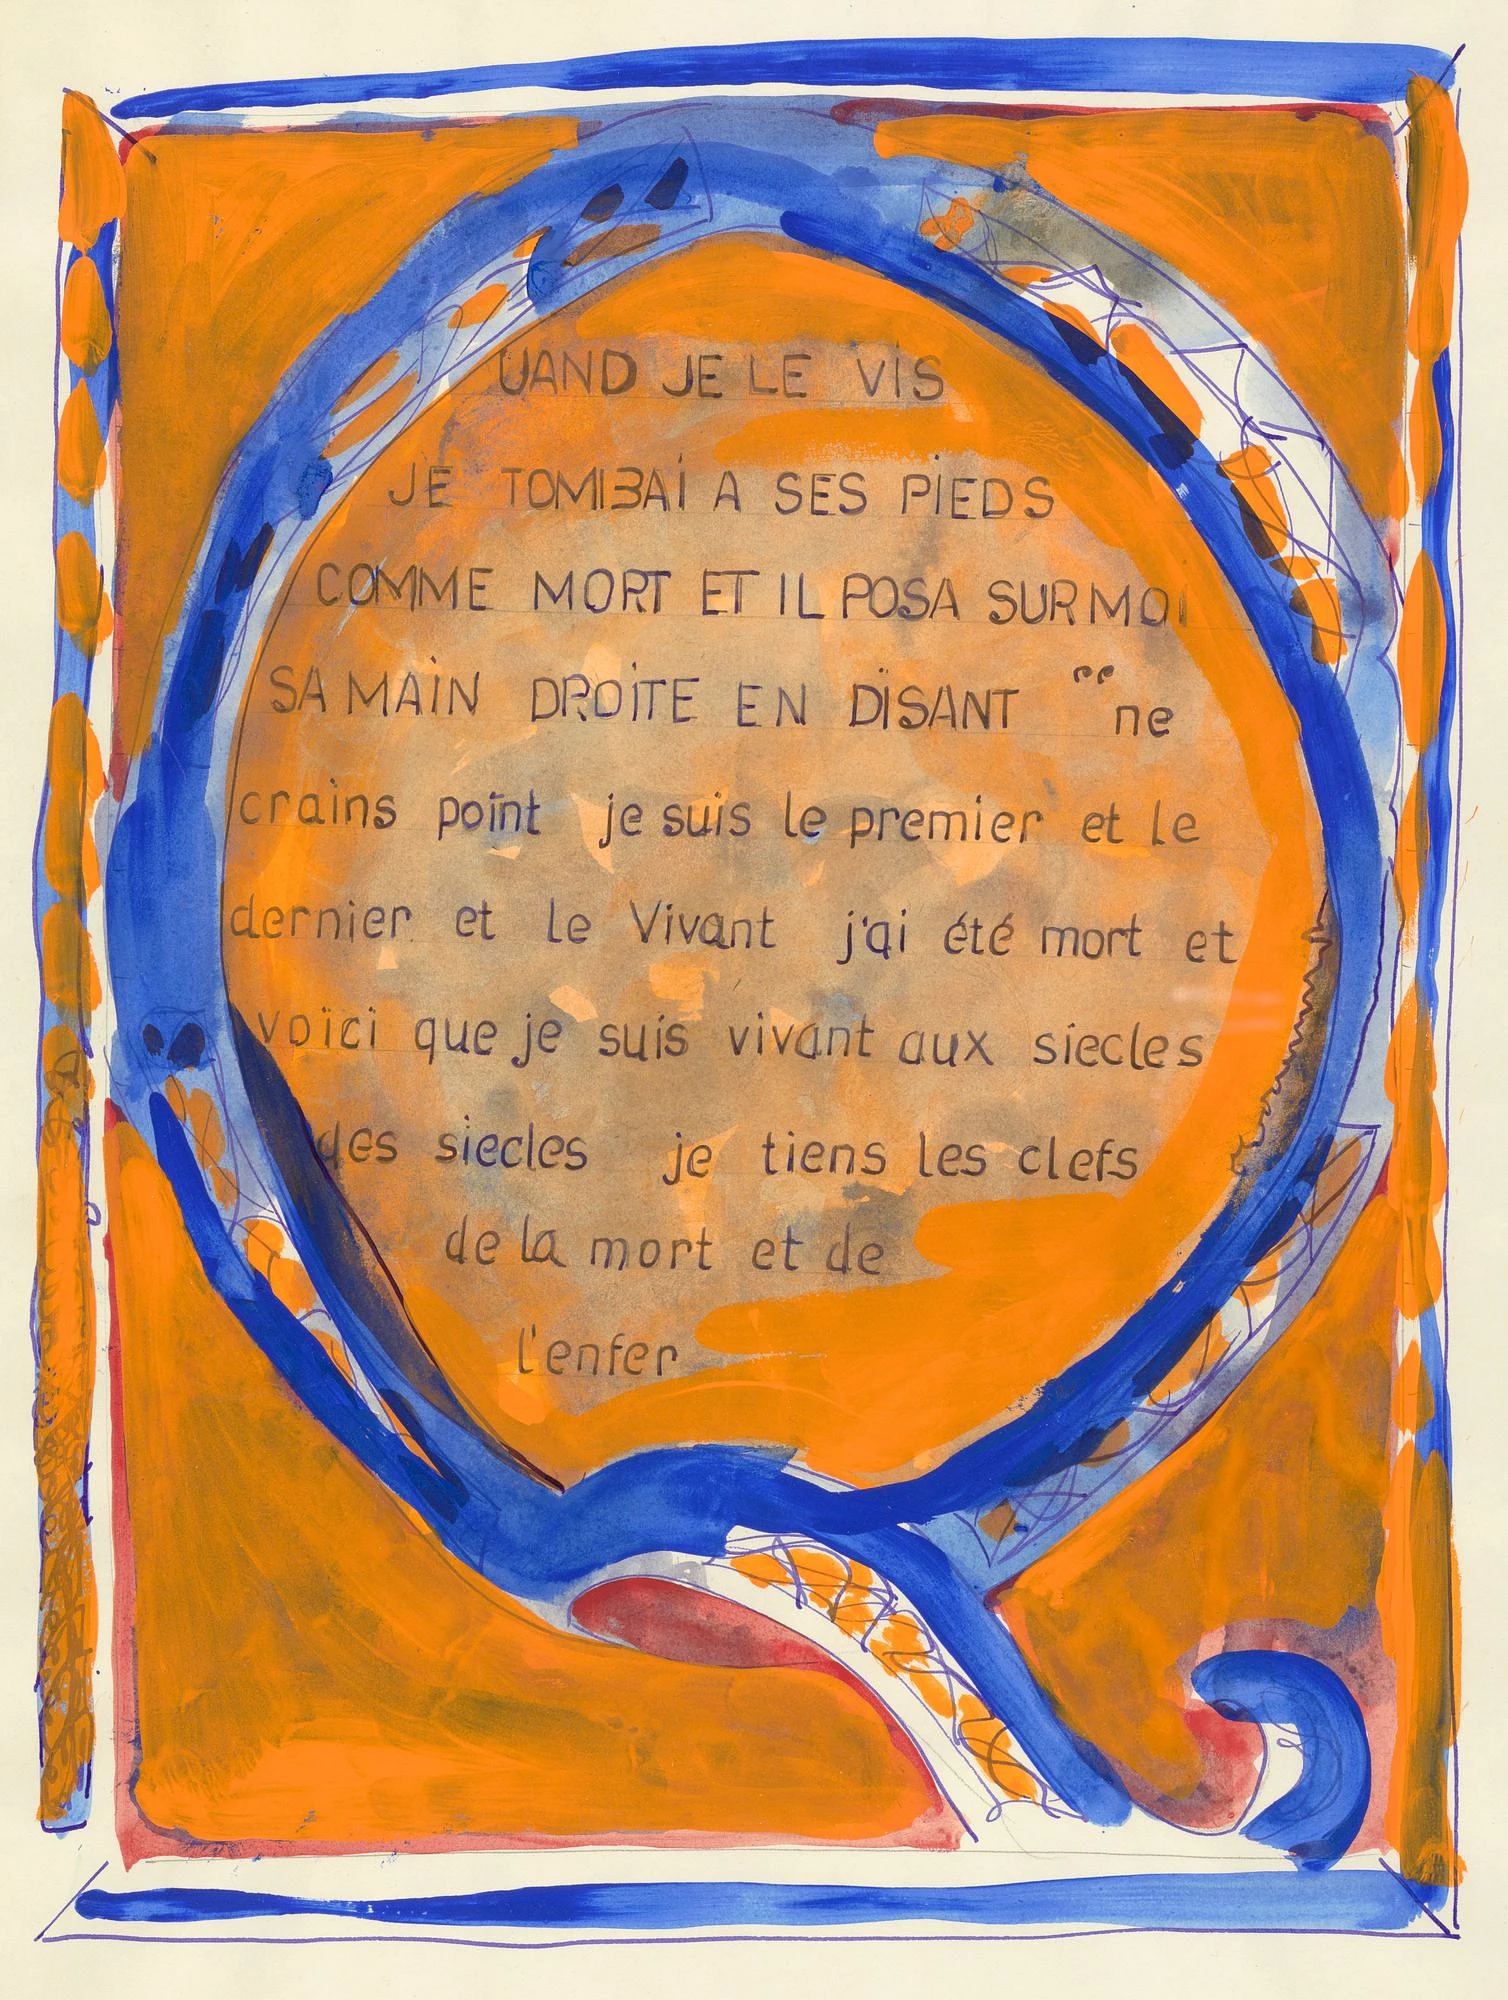 UAND JE LE VIS
JE TOMBAI A SES PIEDS
COMME MORT ET IL POSA SUR MOI
SA MAIN DROITE EN DISANT "ne
crains point je suis le premier et le
dernier et le Vivant j'ai été mort et
voici que je suis vivant aux siecles
des siecles je tiens les clefs
de la mort et de
l'enfer